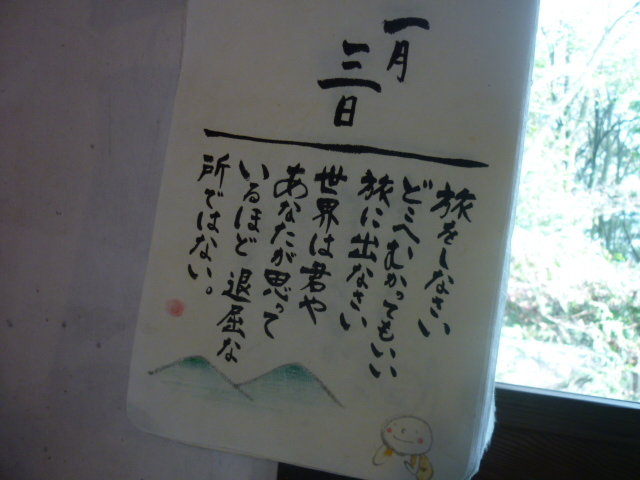 一月
三日
旅をしなさい
どこへむかってもいい
旅に出なさい
世界は君や
あなたが思って
いるほど退屈な
所ではない。